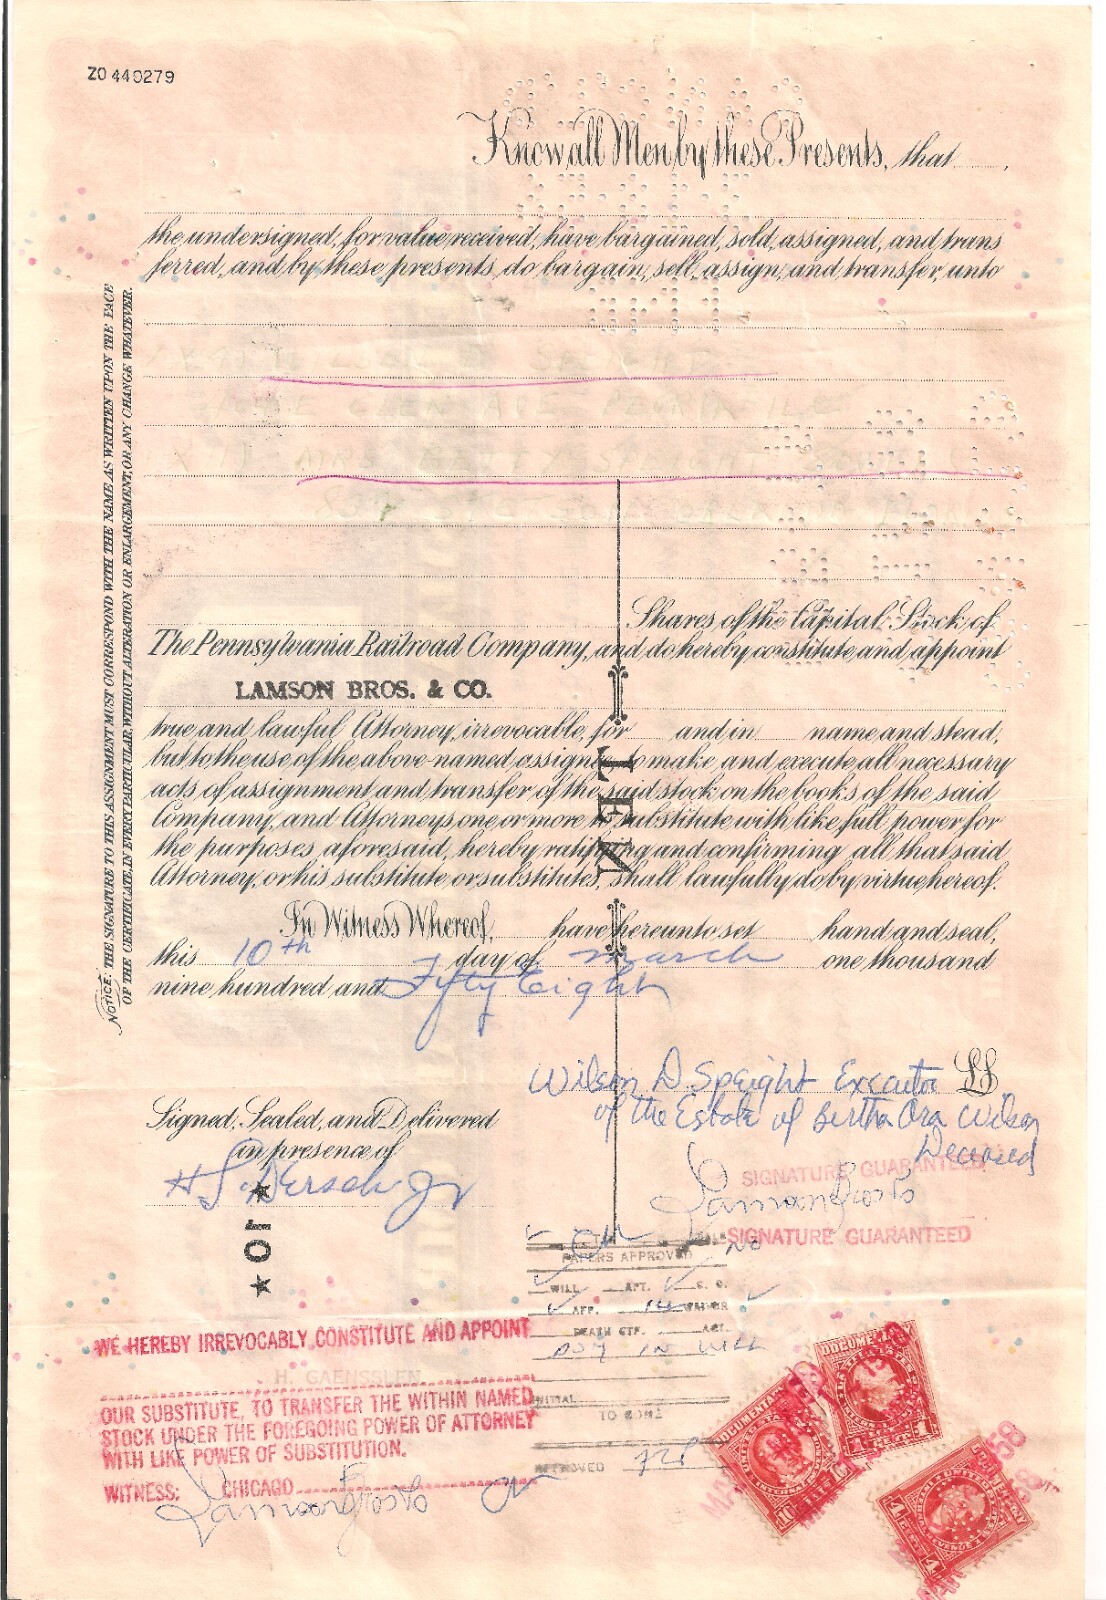 ZO 440279
Know all Men by these Presents, that
the undersigned, for value received, have bargained, sold, assigned, and trans
ferred, and by these presents, do bargain, sell, assign, and transfer, unto
Shares of the Capital Stock of
The Pennsylvania Railroad Company, and do hereby constitute and appoint
LAMSON BROS. & CO.
true and lawful Attorney, irrevocable, for and in name and stead,
but to the use of the above-named assignee, to make and execute all necessary
acts of assignment and transfer of the said stock on the books of the said
Company, and Attorneys, one or more to substitute with like full power for
the purposes aforesaid, hereby ratifying and confirming all that said
Attorney, or his substitute or substitutes, shall lawfully do by virtue hereof.
In Witness Whereof, have hereunto set hand and seal,
this 10th day of March one thousand
nine hundred and Fifty Eight
Wilson D Speight Executor LS
of the Estate of Bertha Ora Wilson
Deceased
Signed, Sealed, and Delivered
in presence of
NOTICE: THE SIGNATURE TO THIS ASSIGNMENT MUST CORRESPOND WITH THE NAME AS WRITTEN UPON THE FACE
OF THE CERTIFICATE, IN EVERY PARTICULAR, WITHOUT ALTERATION OR ENLARGEMENT, OR ANY CHANGE WHATEVER.
SIGNATURE GUARANTEED
Lamson Bros & Co
SIGNATURE GUARANTEED
NO
PAPERS APPROVED
WILL APT. C. O.
AFF. WAIVER
DEATH CTF.
IN WILL
INITIAL
TO COME
APPROVED
★ 10 ★
WE HEREBY IRREVOCABLY CONSTITUTE AND APPOINT
H. GAENSSLEN
OUR SUBSTITUTE, TO TRANSFER THE WITHIN NAMED
STOCK UNDER THE FOREGOING POWER OF ATTORNEY
WITH LIKE POWER OF SUBSTITUTION.
WITNESS: CHICAGO
Lamson Bros & Co
DOCUMENTARY
DOCUMENTARY
DOCUMENTARY